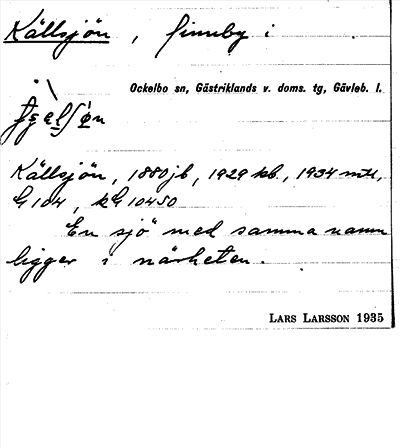 Källsjön, finnby i
Ockelbo sn, Gästriklands v. doms. tg, Gävleb. l.
Källsjön, 1880 jb, 1929 kb, 1934 mtl,
G 104, kG 10450
En sjö med samma namn
ligger i närheten.
LARS LARSSON 1935